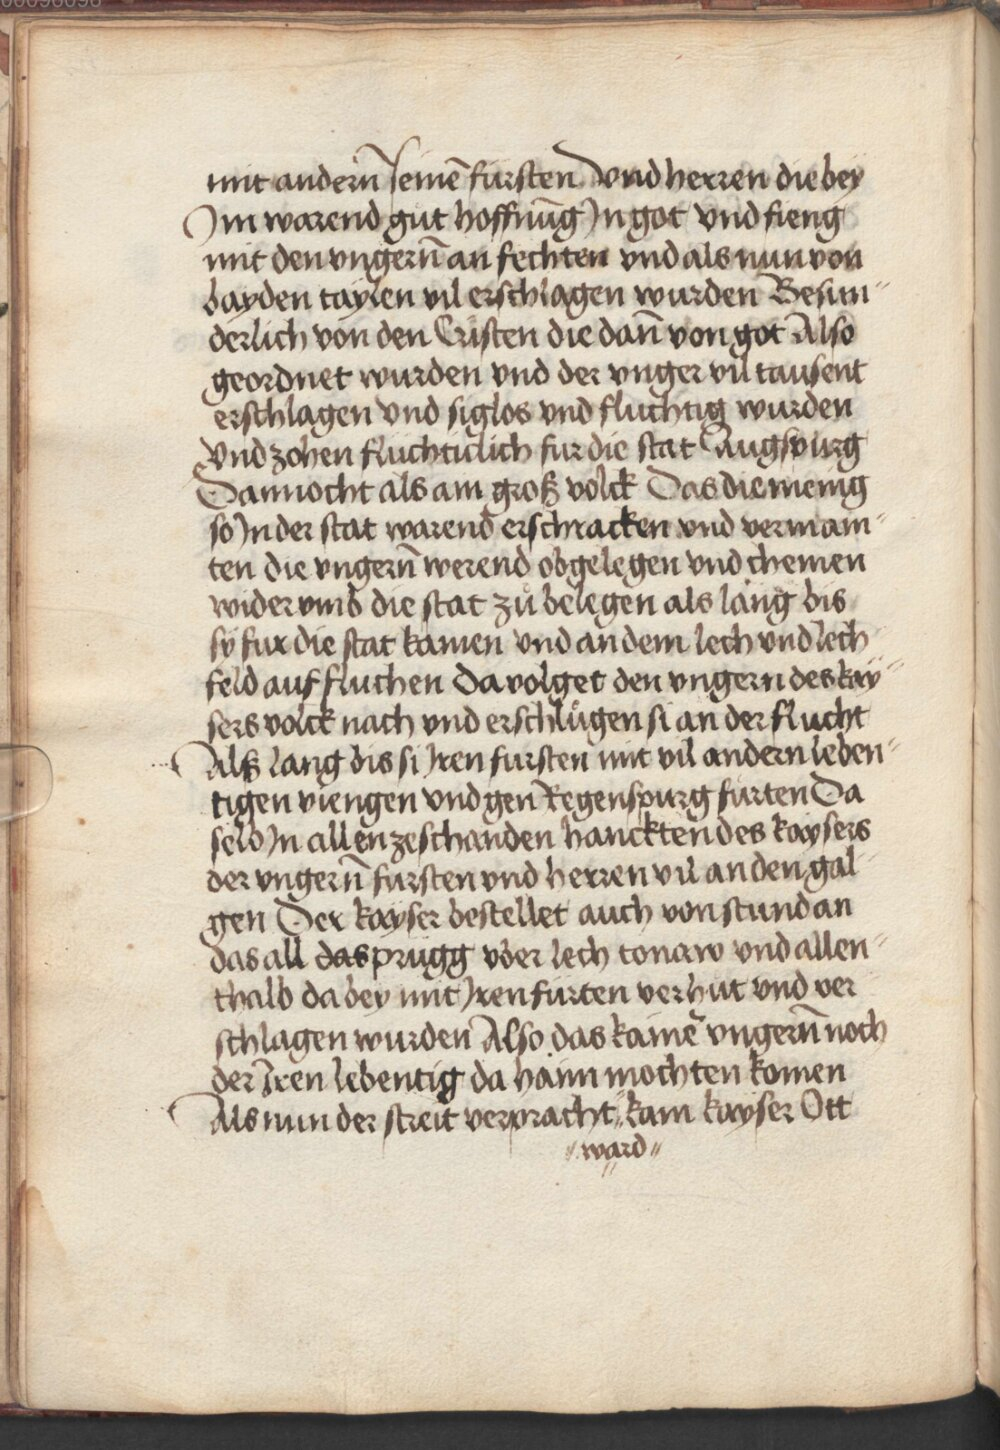 mit andern̄ seinē fürsten Vnd herren die bey
Im warend gut hoffnūg In got vnd fieng
mit den vngern̄ an fechten vnd als nun von
bayden taylen vil erschlagen wurden Besun-
derlich von den Cristen die dan̄ von got Also
geordnet wurden vnd der vnger vil tausent
erschlagen vnd siglos vnd fluchtig wurden
Vnd zohen fluchticlich fur die stat Augspurg
Dannocht als am groß volck Das die menig
so In der stat warend erschracken vnd vermain-
ten die vngern̄ werend obgelegen vnd chemen
wider vmb die stat zů belegen als lang bis
sy fur die stat kamen vnd an dem lech vnd lech
feld auf fluchen Da volget den vngern des kay-
sers volck nach vnd erschlůgen si an der flucht
Alß lang bis si Iren fursten mit vil andern leben-
tigen viengen vnd gen Regenspurg furten Da
selb In allen ze schanden hanckten des kaysers
der vngern̄ fursten vnd herren vil an den gal-
gen Der kayser bestellet auch von stund an
das all das prugg vber lech tonaw vnd allen-
thalb da bey mit Iren furten verhut vnd ver
schlagen wurden Also das kainē vngern̄ noch
der Iren lebentig da haim mochten komen
Als nun der streit verpracht kam kayser Ott
ward